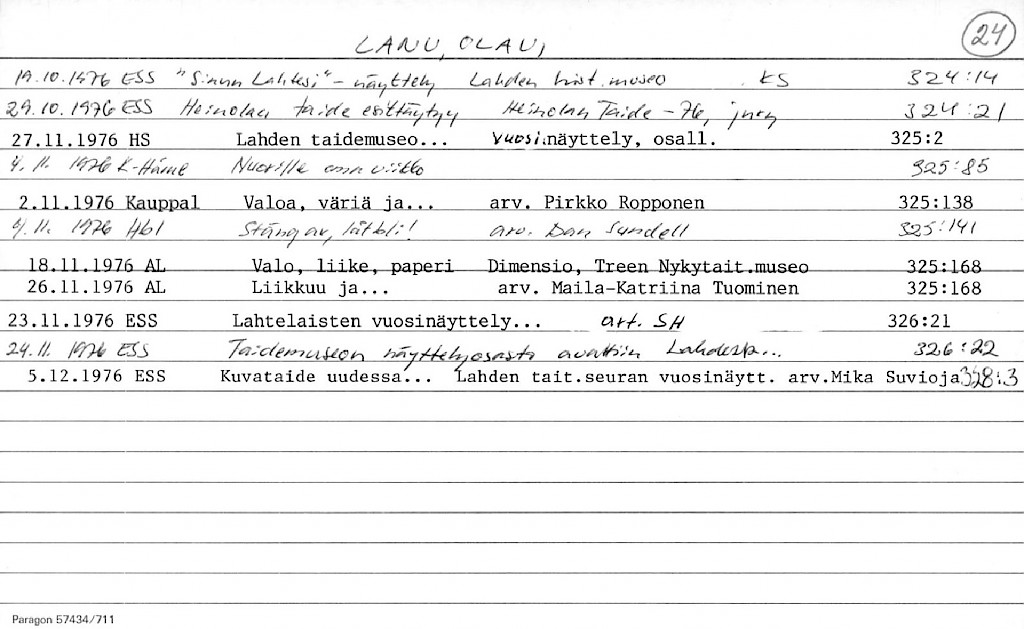 LANU, OLAVI
24
19.10.1976 ESS "Sinun Lahtesi"-näyttely Lahden hist. museo KS 324:14
29.10.1976 ESS Heinolan taide esittäytyy Heinolan Taide -76, jury 324:21
27.11.1976 HS Lahden taidemuseo... vuosinäyttely, osall. 325:2
4.11. 1976 K-Häme Nuorille oma viikko 325:85
2.11.1976 Kauppal Valoa, väriä ja... arv. Pirkko Ropponen 325:138
4.11. 1976 Hbl Stäng av, låt bli! arv. Dan Sundell 325:141
18.11.1976 AL Valo, liike, paperi Dimensio, Treen Nykytait.museo 325:168
26.11.1976 AL Liikkuu ja... arv. Maila-Katriina Tuominen 325:168
23.11.1976 ESS Lahtelaisten vuosinäyttely... art. SH 326:21
24.11. 1976 ESS Taidemuseon näyttelyosasto avattiin Lahdessa... 326:22
5.12.1976 ESS Kuvataide uudessa... Lahden tait.seuran vuosinäytt. arv.Mika Suvioja 328:3
Paragon 57434/711